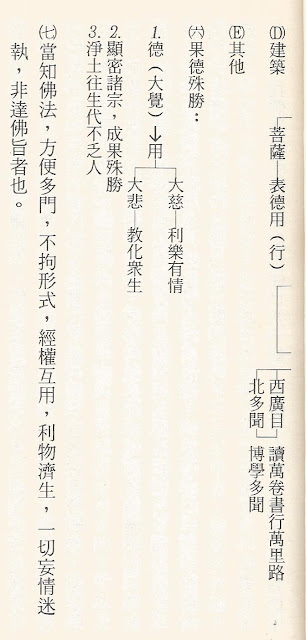 (D)建築
菩薩—表德用(行)
西廣目 讀萬卷書行萬里路
北多聞 博學多聞
(E)其他
㈥果德殊勝：
1.德(大覺)→用
大慈—利樂有情
大悲—教化衆生
2.顯密諸宗，成果殊勝
3.淨土往生代不乏人
㈦當知佛法，方便多門，不拘形式，經權互用，利物濟生，一切妄情迷
執，非達佛旨者也。